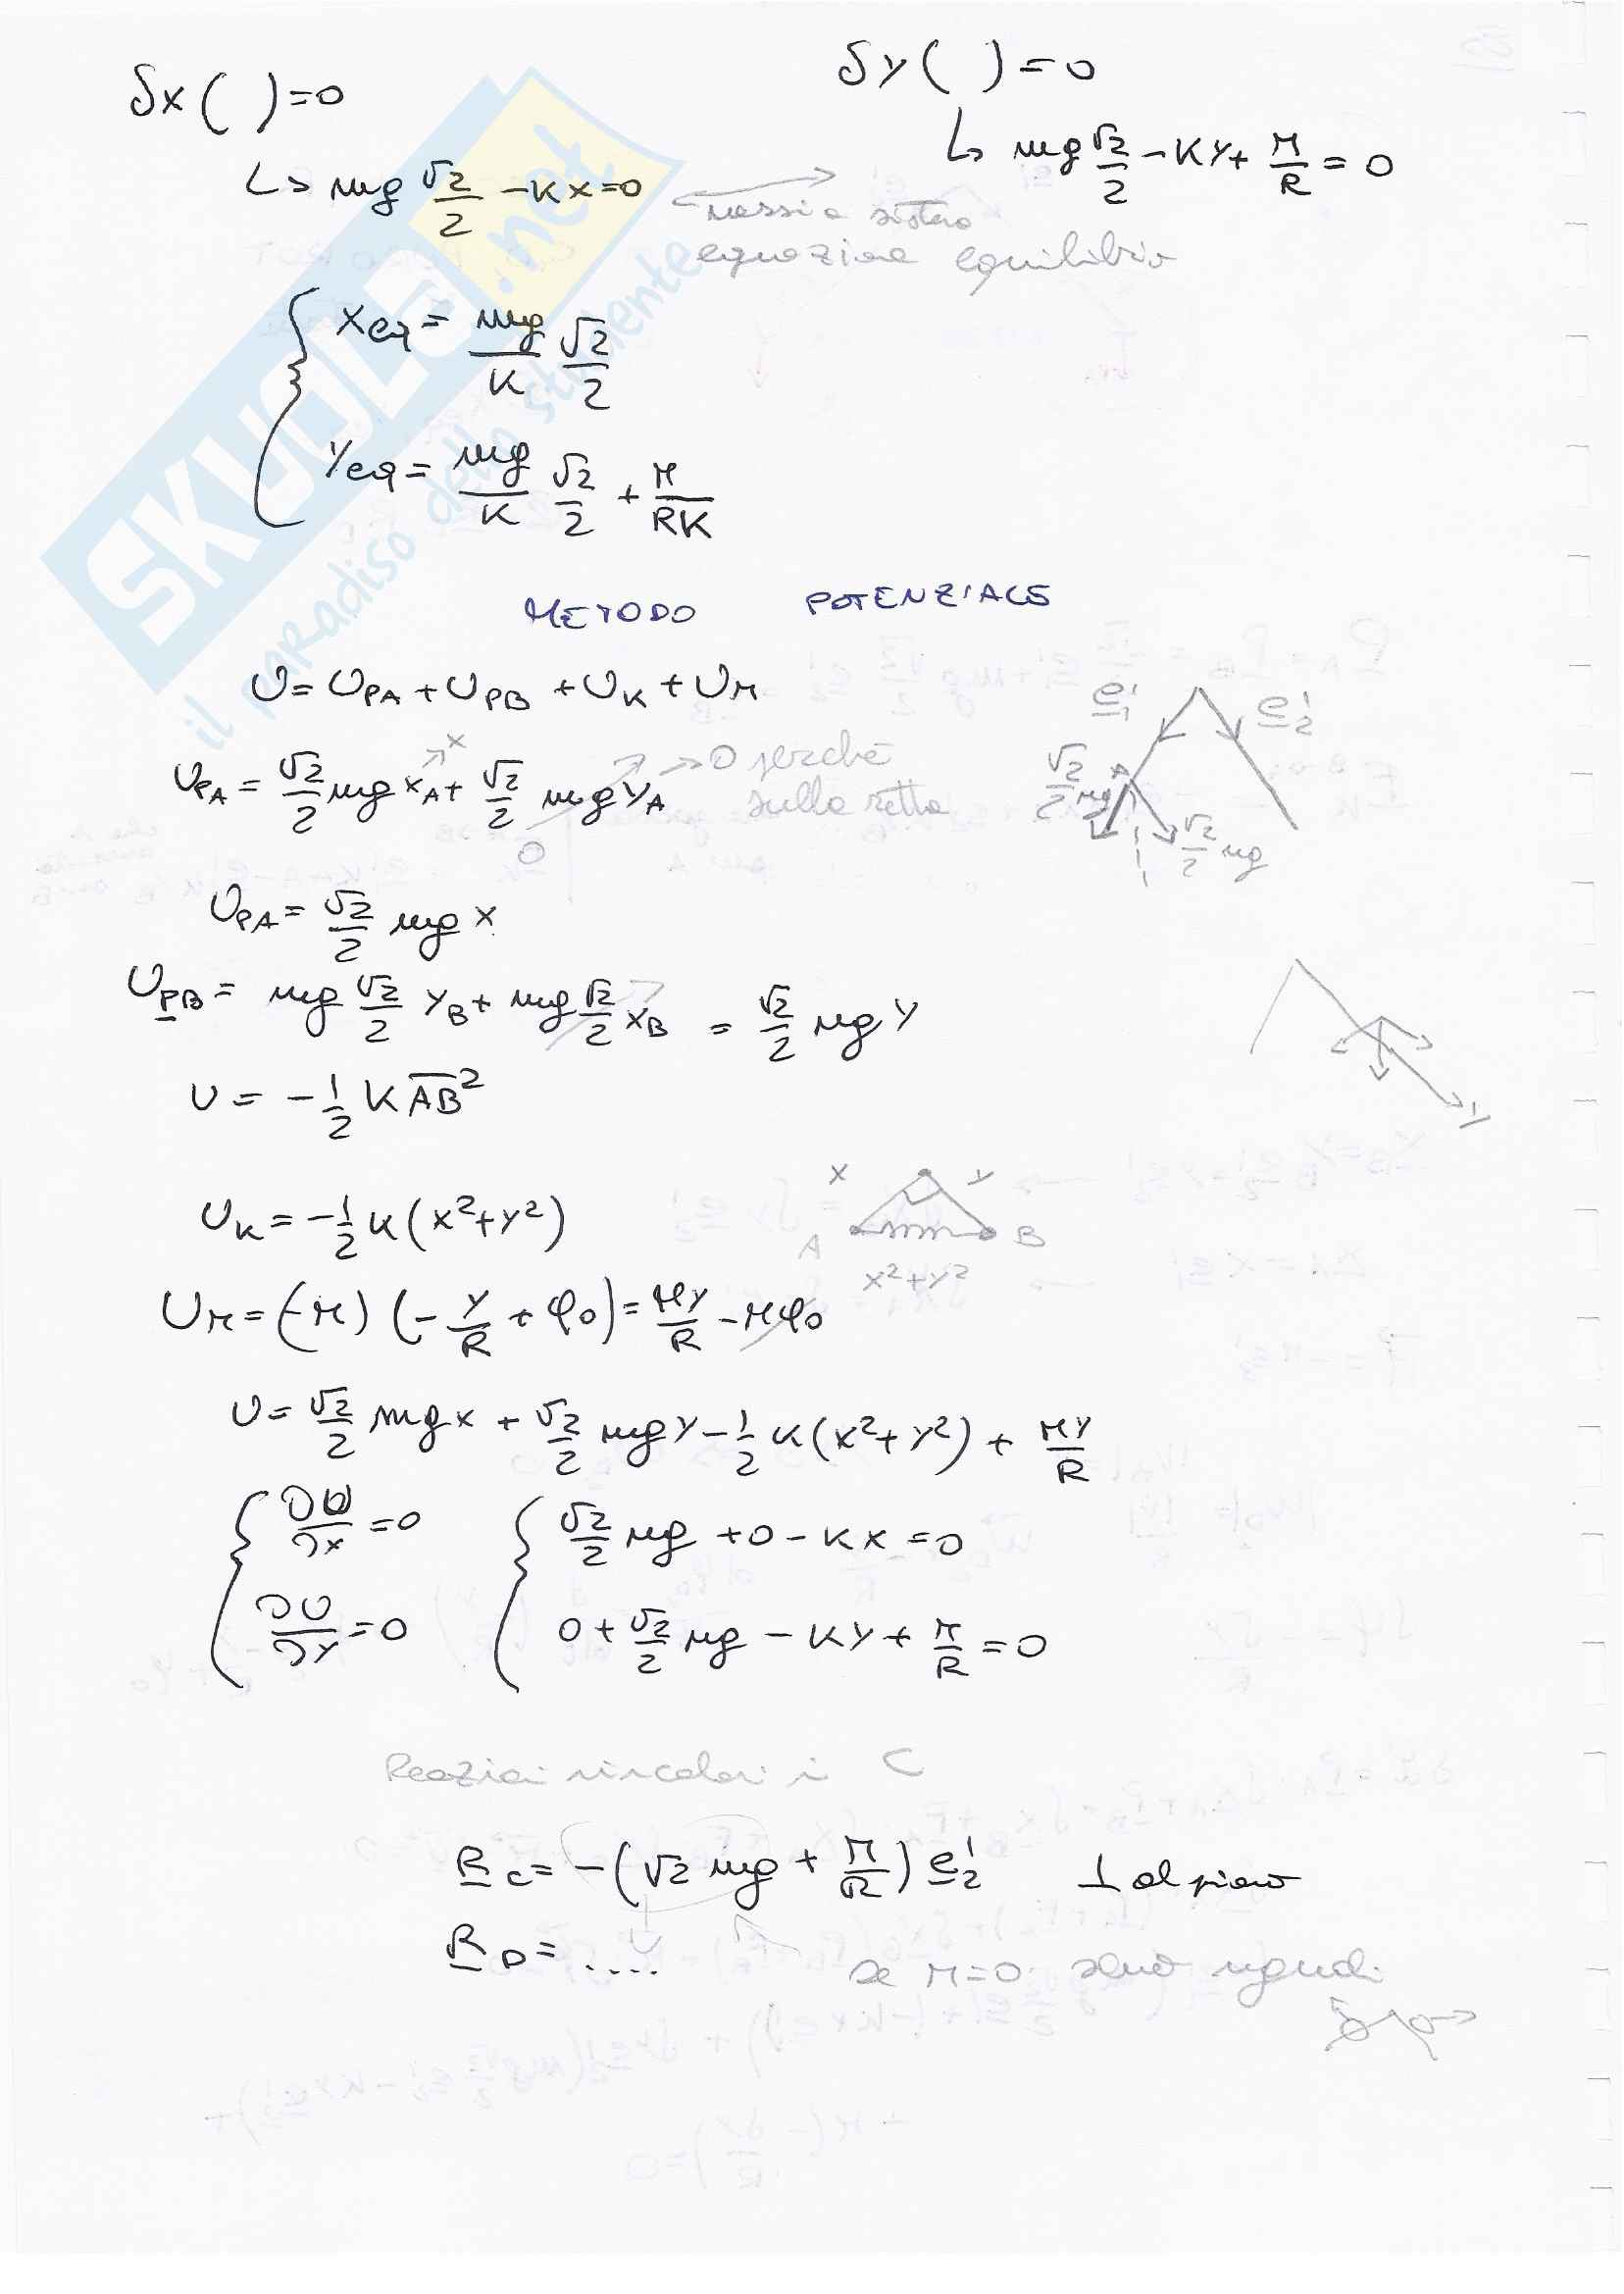 δx ( ) = 0
δy ( ) = 0
↳ mg √2/2 - Kx = 0
↳ mg √2/2 - Ky + M/R = 0
messi a sistema
equazione equilibrio
{ xeq = mg/K √2/2
yeq = mg/K √2/2 + M/RK
METODO POTENZIALE
U = UPA + UPB + UK + UM
e'1 e'2
UPA = √2/2 mg xA + √2/2 mg yA → 0 perché
x
sulla retta
0
A
√2/2 mg
√2/2 mg
UPA = √2/2 mg x
UPB = mg √2/2 yB + mg √2/2 xB = √2/2 mg y
y
U = - 1/2 K AB²
x y
A B
x² + y²
UK = - 1/2 K (x² + y²)
UM = (-M) (- y/R + φ0) = My/R - Mφ0
U = √2/2 mg x + √2/2 mg y - 1/2 K (x² + y²) + My/R
{ ∂U/∂x = 0 { √2/2 mg + 0 - Kx = 0
∂U/∂y = 0 0 + √2/2 mg - Ky + M/R = 0
Reazioni vincolari in C
RC = - (√2 mg + M/R) e'2 ⊥ al piano
RD = ....
se M = 0 sono uguali
SKUOLA.net
il paradiso dello studente